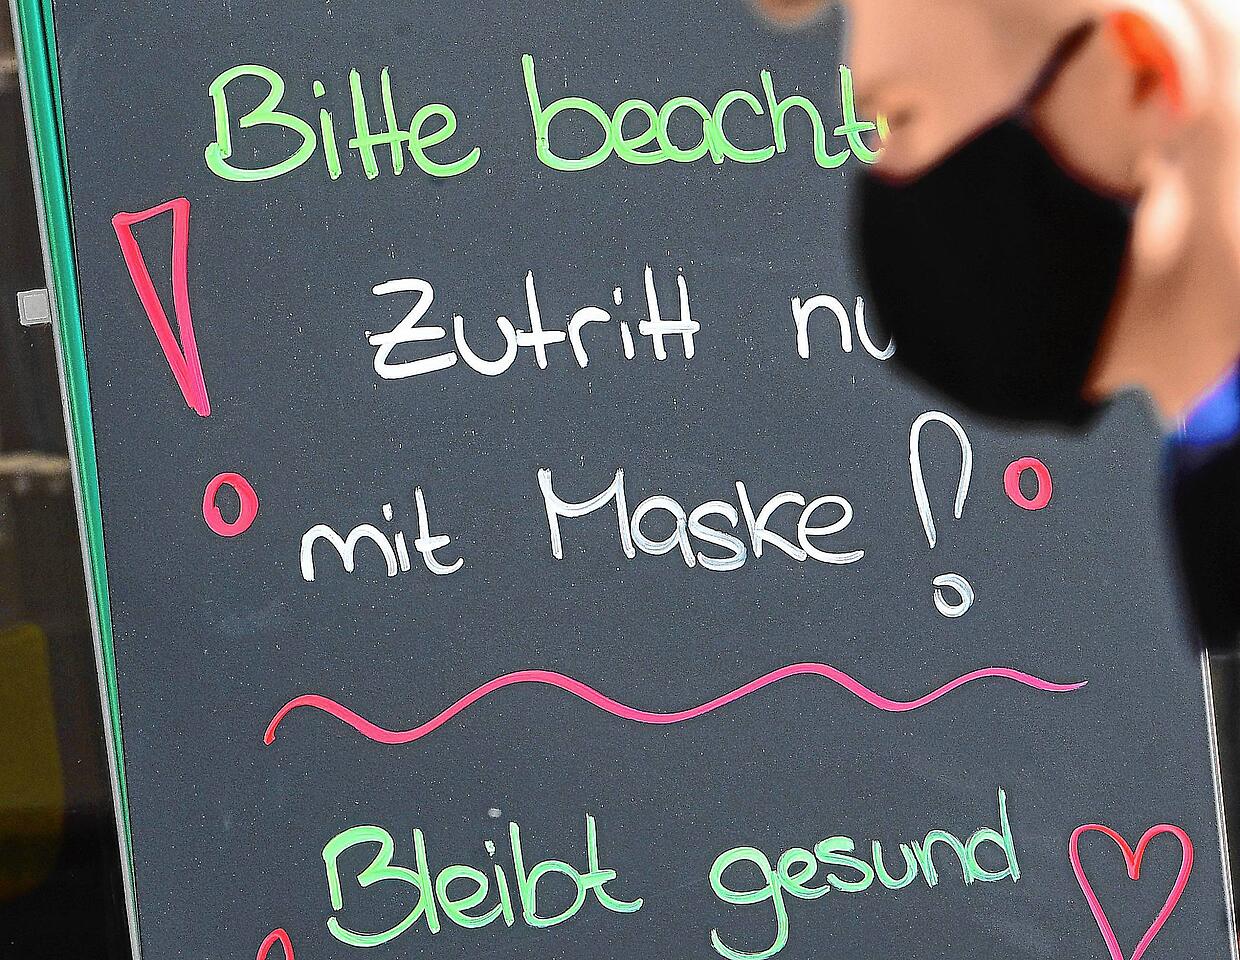 Bitte beacht
Zutritt nu
mit Maske!
Bleibt gesund